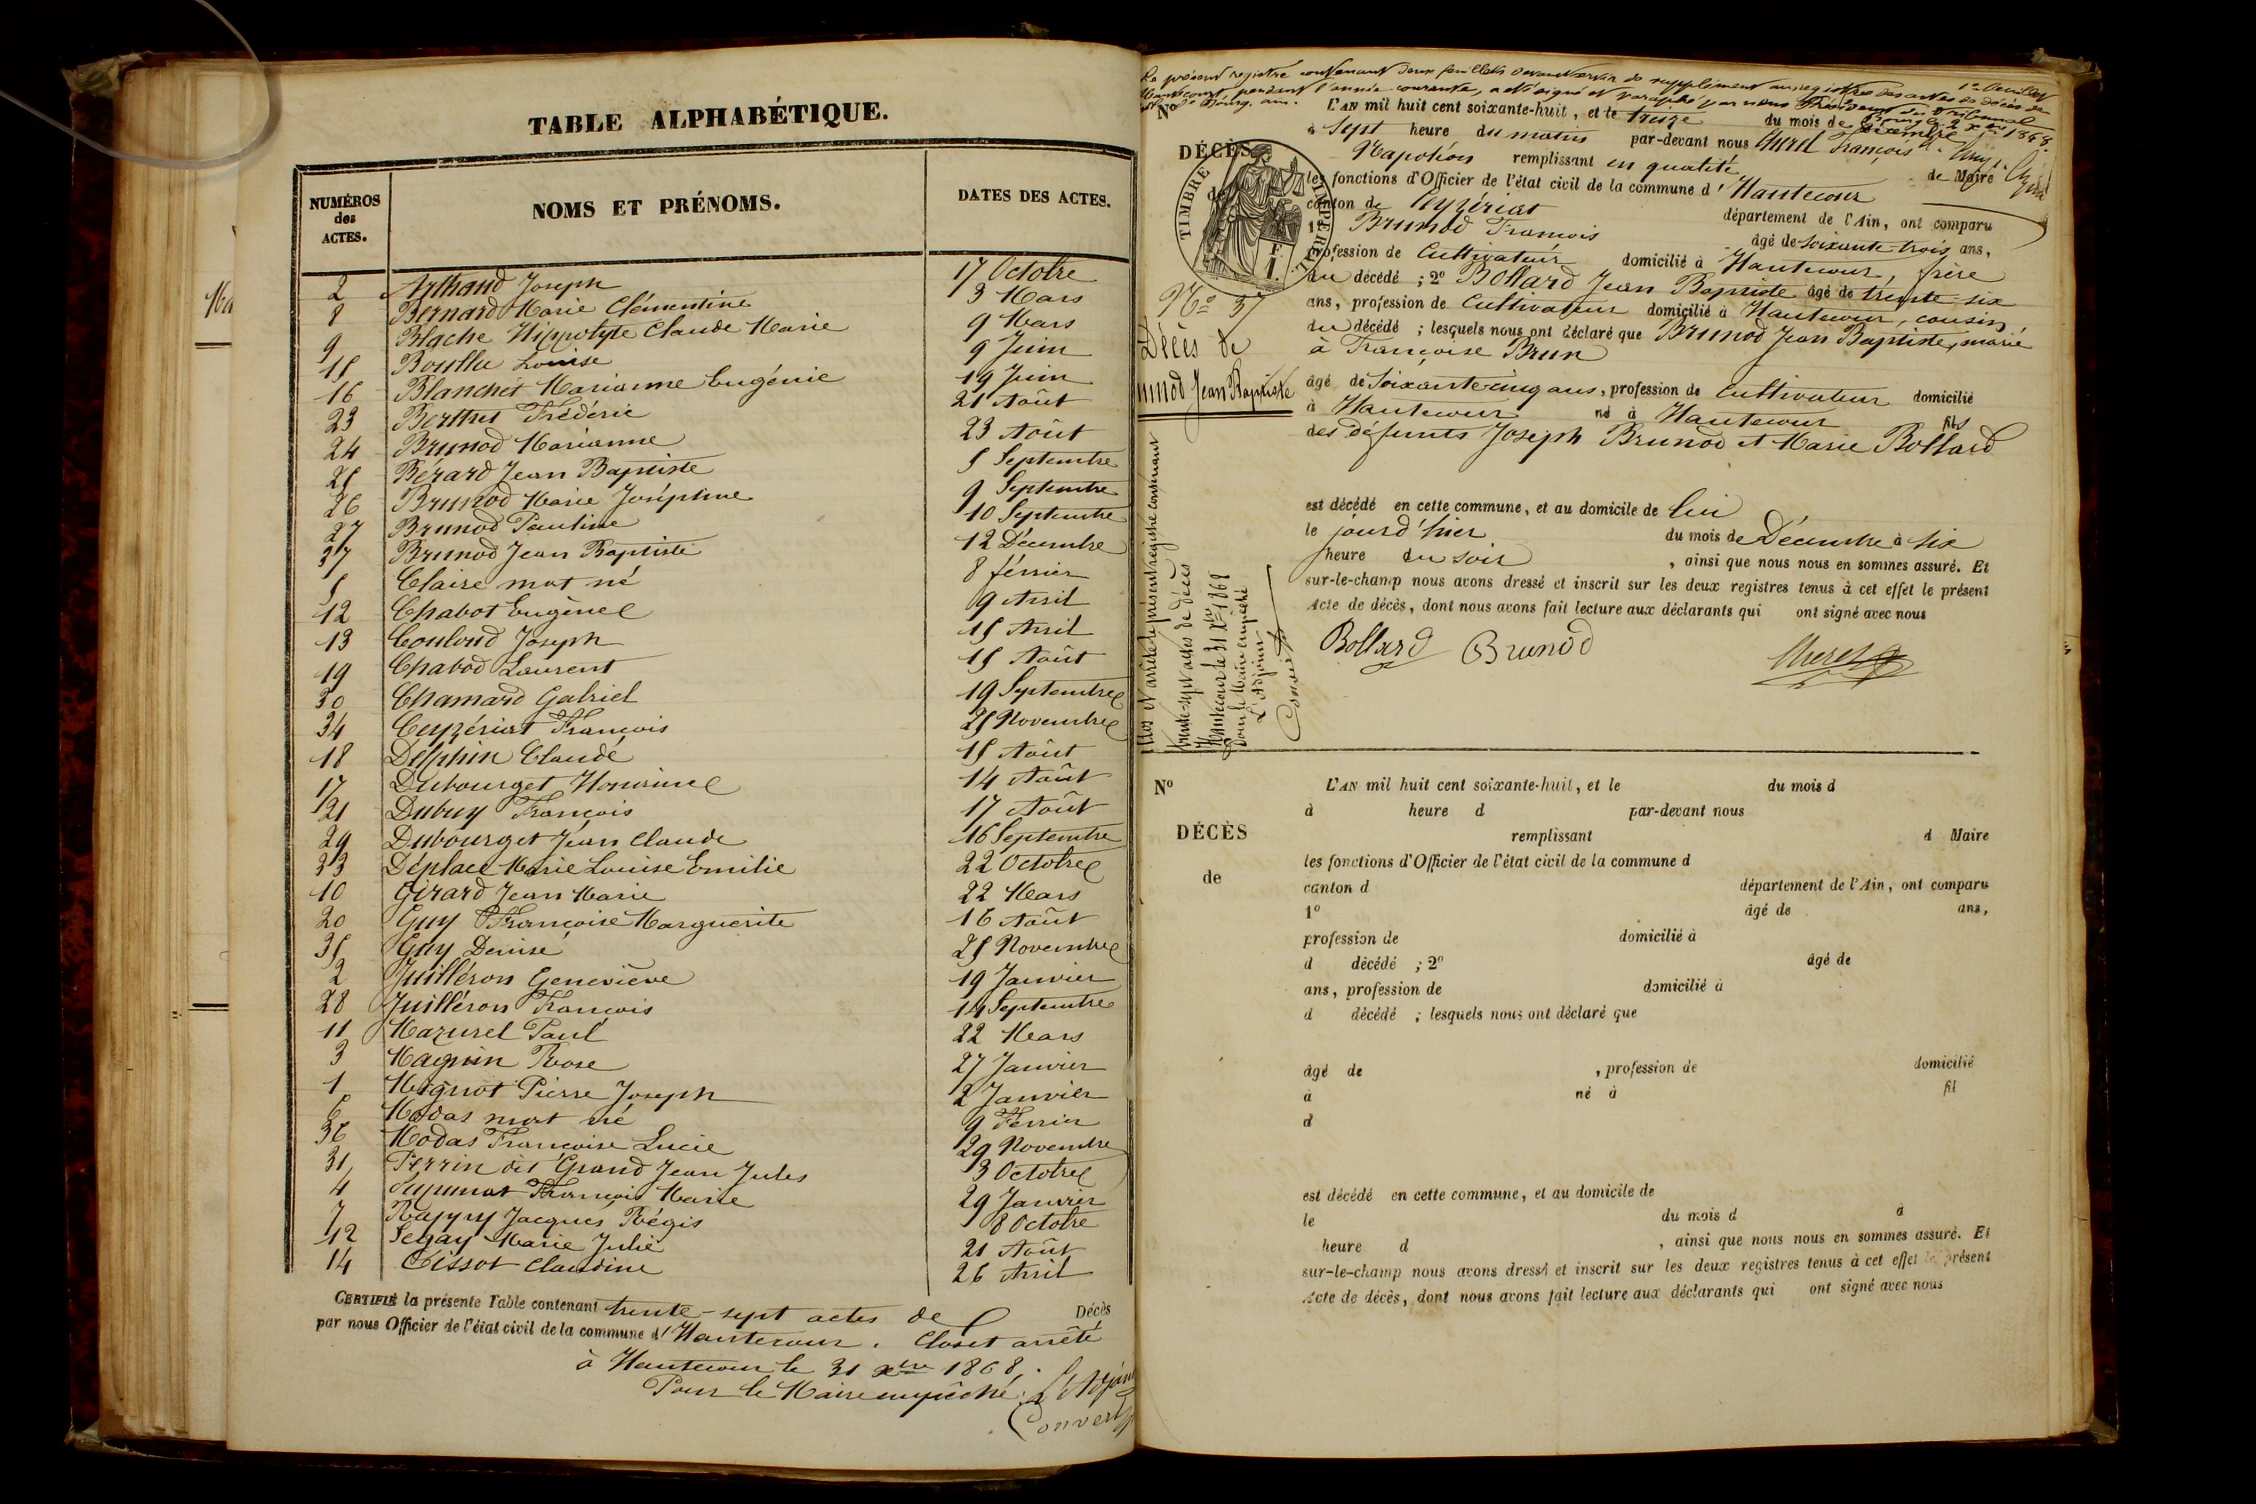 TABLE ALPHABÉTIQUE.
NUMÉROS des ACTES. NOMS ET PRÉNOMS. DATES DES ACTES.
2 Arthaud Joseph 17 Octobre
8 Bernard Marie Clémentine 3 Mars
9 Blache Hippolyte Claude Marie 9 Mars
15 Louise 9 Juin
16 Blanchet Marianne Eugénie 19 Juin
23 Berthet Frédéric 21 Août
24 Brunod Marianne 23 Août
25 Bérard Jean Baptiste 5 Septembre
26 Brunod Marie Joséphine 9 Septembre
27 Brunod Pauline 10 Septembre
37 Brunod Jean Baptiste 12 Décembre
5 Claire mort né 8 février
12 Chabot Eugène 9 Avril
13 Joseph 15 Avril
19 Chabod Laurent 15 Août
30 Chamard Gabriel 19 Septembre
34 Ceyzériat François 25 Novembre
18 Delphin Claude 15 Août
17 Dubourget Honorine 14 Août
21 Dubuy François 17 Août
29 Dubourget Jean Claude 16 Septembre
33 Déplace Marie Louise Emilie 22 Octobre
10 Girard Jean Marie 22 Mars
20 Guy Françoise Marguerite 16 Août
35 Guy Denise 25 Novembre
2 Juilléron Geneviève 19 Janvier
28 Juilléron François 14 Septembre
11 Mazurel Paul 22 Mars
3 Magnin Rose 27 Janvier
1 Mignot Pierre Joseph 2 Janvier
6 Modas mort né 9 Fevrier
36 Modas Françoise Lucie 29 Novembre
31 Perrin dit Grand Jean Jules 3 Octobre
4 François Marie 29 Janvier
7 Jacques Régis 8 Octobre
12 Segay Marie Julie 21 Août
14 Tissot Claudine 26 Avril
CERTIFIÉ la présente Table contenant trente-sept actes de Décès
par nous Officier de l'état civil de la commune d'Hautecour. Clos et arrêté
à Hautecour le 31 Xbre 1868.
Pour le Maire empêché, L'Adjoint
Convert
Le présent registre contenant deux feuillets devant servir de supplément aux registres des actes de décès de
Hautecourt pendant l'année courante, a été signé et paraphé par nous Président du Tribunal
1er feuillet
Bourg le 2 Xbre 1868.
No L'AN mil huit cent soixante-huit, et le treize du mois de Décembre
à Sept heure du matin par-devant nous François
DÉCÈS
de
TIMBRE IMPÉRIAL
Napoléon remplissant en qualité de Maire
les fonctions d'Officier de l'état civil de la commune d'Hautecour
canton de Ceyzériat département de l'Ain, ont comparu
1o Brunod François âgé de soixante-trois ans,
profession de Cultivateur domicilié à Hautecour, frère
du décédé ; 2o Bollard Jean Baptiste âgé de trente-six
ans, profession de Cultivateur domicilié à Hautecour, cousin
du décédé ; lesquels nous ont déclaré que Brunod Jean Baptiste, marié
à Françoise Brun
No 37
Décès de
unod Jean Baptiste
âgé de Soixante-cinq ans, profession de Cultivateur domicilié
à Hautecour né à Hautecour fils
des défunts Joseph Brunod et Marie Bollard
est décédé en cette commune, et au domicile de lui
le jourd'hier du mois de Décembre à Six
heure du soir , ainsi que nous nous en sommes assuré. Et
sur-le-champ nous avons dressé et inscrit sur les deux registres tenus à cet effet le présent
Acte de décès, dont nous avons fait lecture aux déclarants qui ont signé avec nous
Bollard Brunod
Clos et arrêté le présent registre contenant
trente-sept actes de décès
Hautecour le 31 Xbre 1868
Pour le Maire empêché
L'Adjoint
Convert
No L'AN mil huit cent soixante-huit, et le du mois d
à heure d par-devant nous
DÉCÈS remplissant d Maire
les fonctions d'Officier de l'état civil de la commune d
de
canton d département de l'Ain, ont comparu
1o âgé de ans,
profession de domicilié à
d décédé ; 2o âgé de
ans, profession de domicilié à
d décédé ; lesquels nous ont déclaré que
âgé de , profession de domicilié
à né à fil
d
est décédé en cette commune, et au domicile de
le du mois d à
heure d , ainsi que nous nous en sommes assuré. Et
sur-le-champ nous avons dressé et inscrit sur les deux registres tenus à cet effet le présent
Acte de décès, dont nous avons fait lecture aux déclarants qui ont signé avec nous